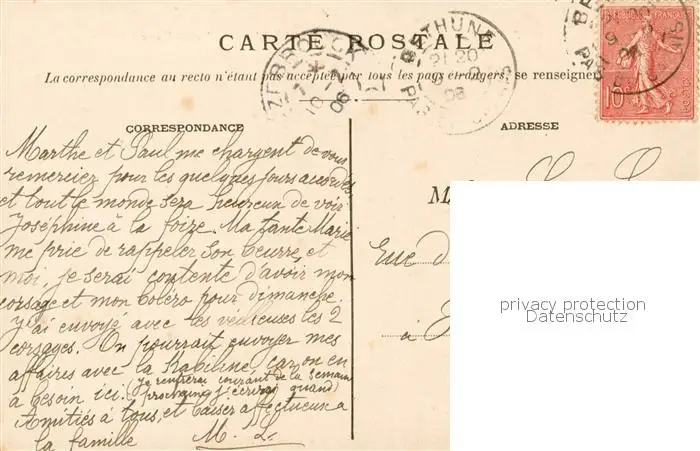 CARTE POSTALE
La correspondance au recto n'étant pas acceptée par tous les pays étrangers, se renseigner
CORRESPONDANCE
Marthe et Paul me chargent de vous
remercier pour les quelques jours accordés
et tout le monde sera heureux de voir
Joséphine à la foire. Ma tante Marie
me prie de rappeler son beurre, et
moi, je serai contente d'avoir mon
corsage et mon boléro pour dimanche.
J'ai envoyé avec les les 2
corsages. On pourrait envoyer mes
affaires avec la car on en
a besoin ici. je rentrerai courant de la semaine
prochaine j'écrirai quand
Amitiés à tous, et baiser affectueux à
la famille M. L.
ADRESSE
M
Rue d
à
BETHUNE
21 20
06
PAS
HAZEBROUCK
06
REPUBLIQUE FRANÇAISE
10
POSTES
privacy protection
Datenschutz